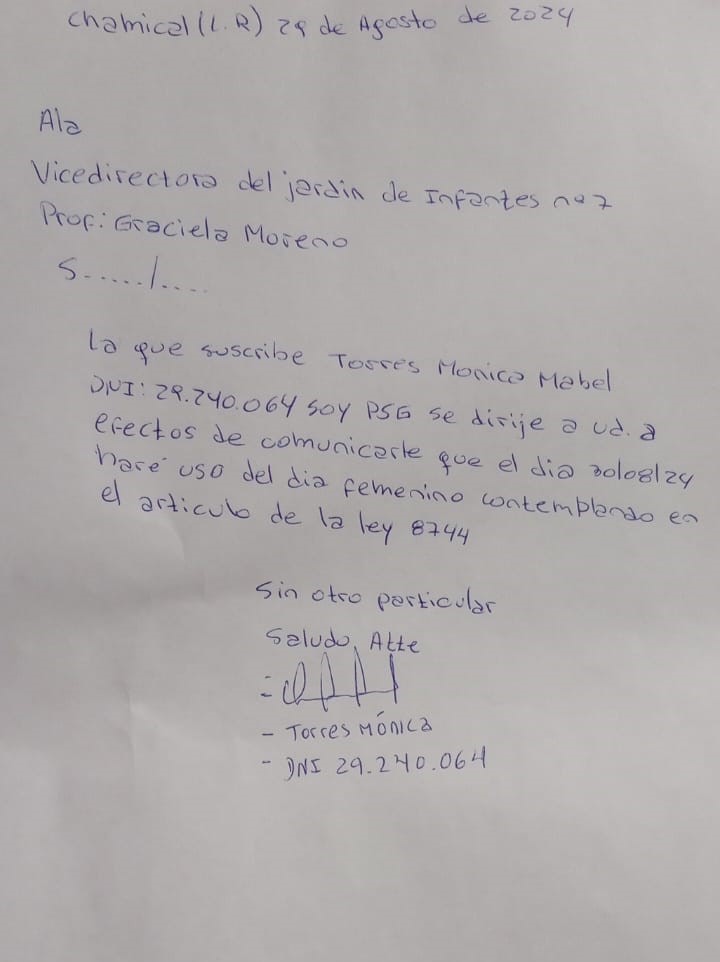 Chamical (L.R) 29 de Agosto de 2024
Ala
Vicedirectora del jardin de Infantes nº 7
Prof: Graciela Moreno
S...../....
La que suscribe Torres Monica Mabel
DNI: 29.240.064 soy PSG se dirije a ud. a
efectos de comunicarle que el dia 30/08/24
haré uso del dia femenino contemplando en
el articulo de la ley 8744
Sin otro particular
Saludo, Atte
- Torres Mónica
- DNI 29.240.064